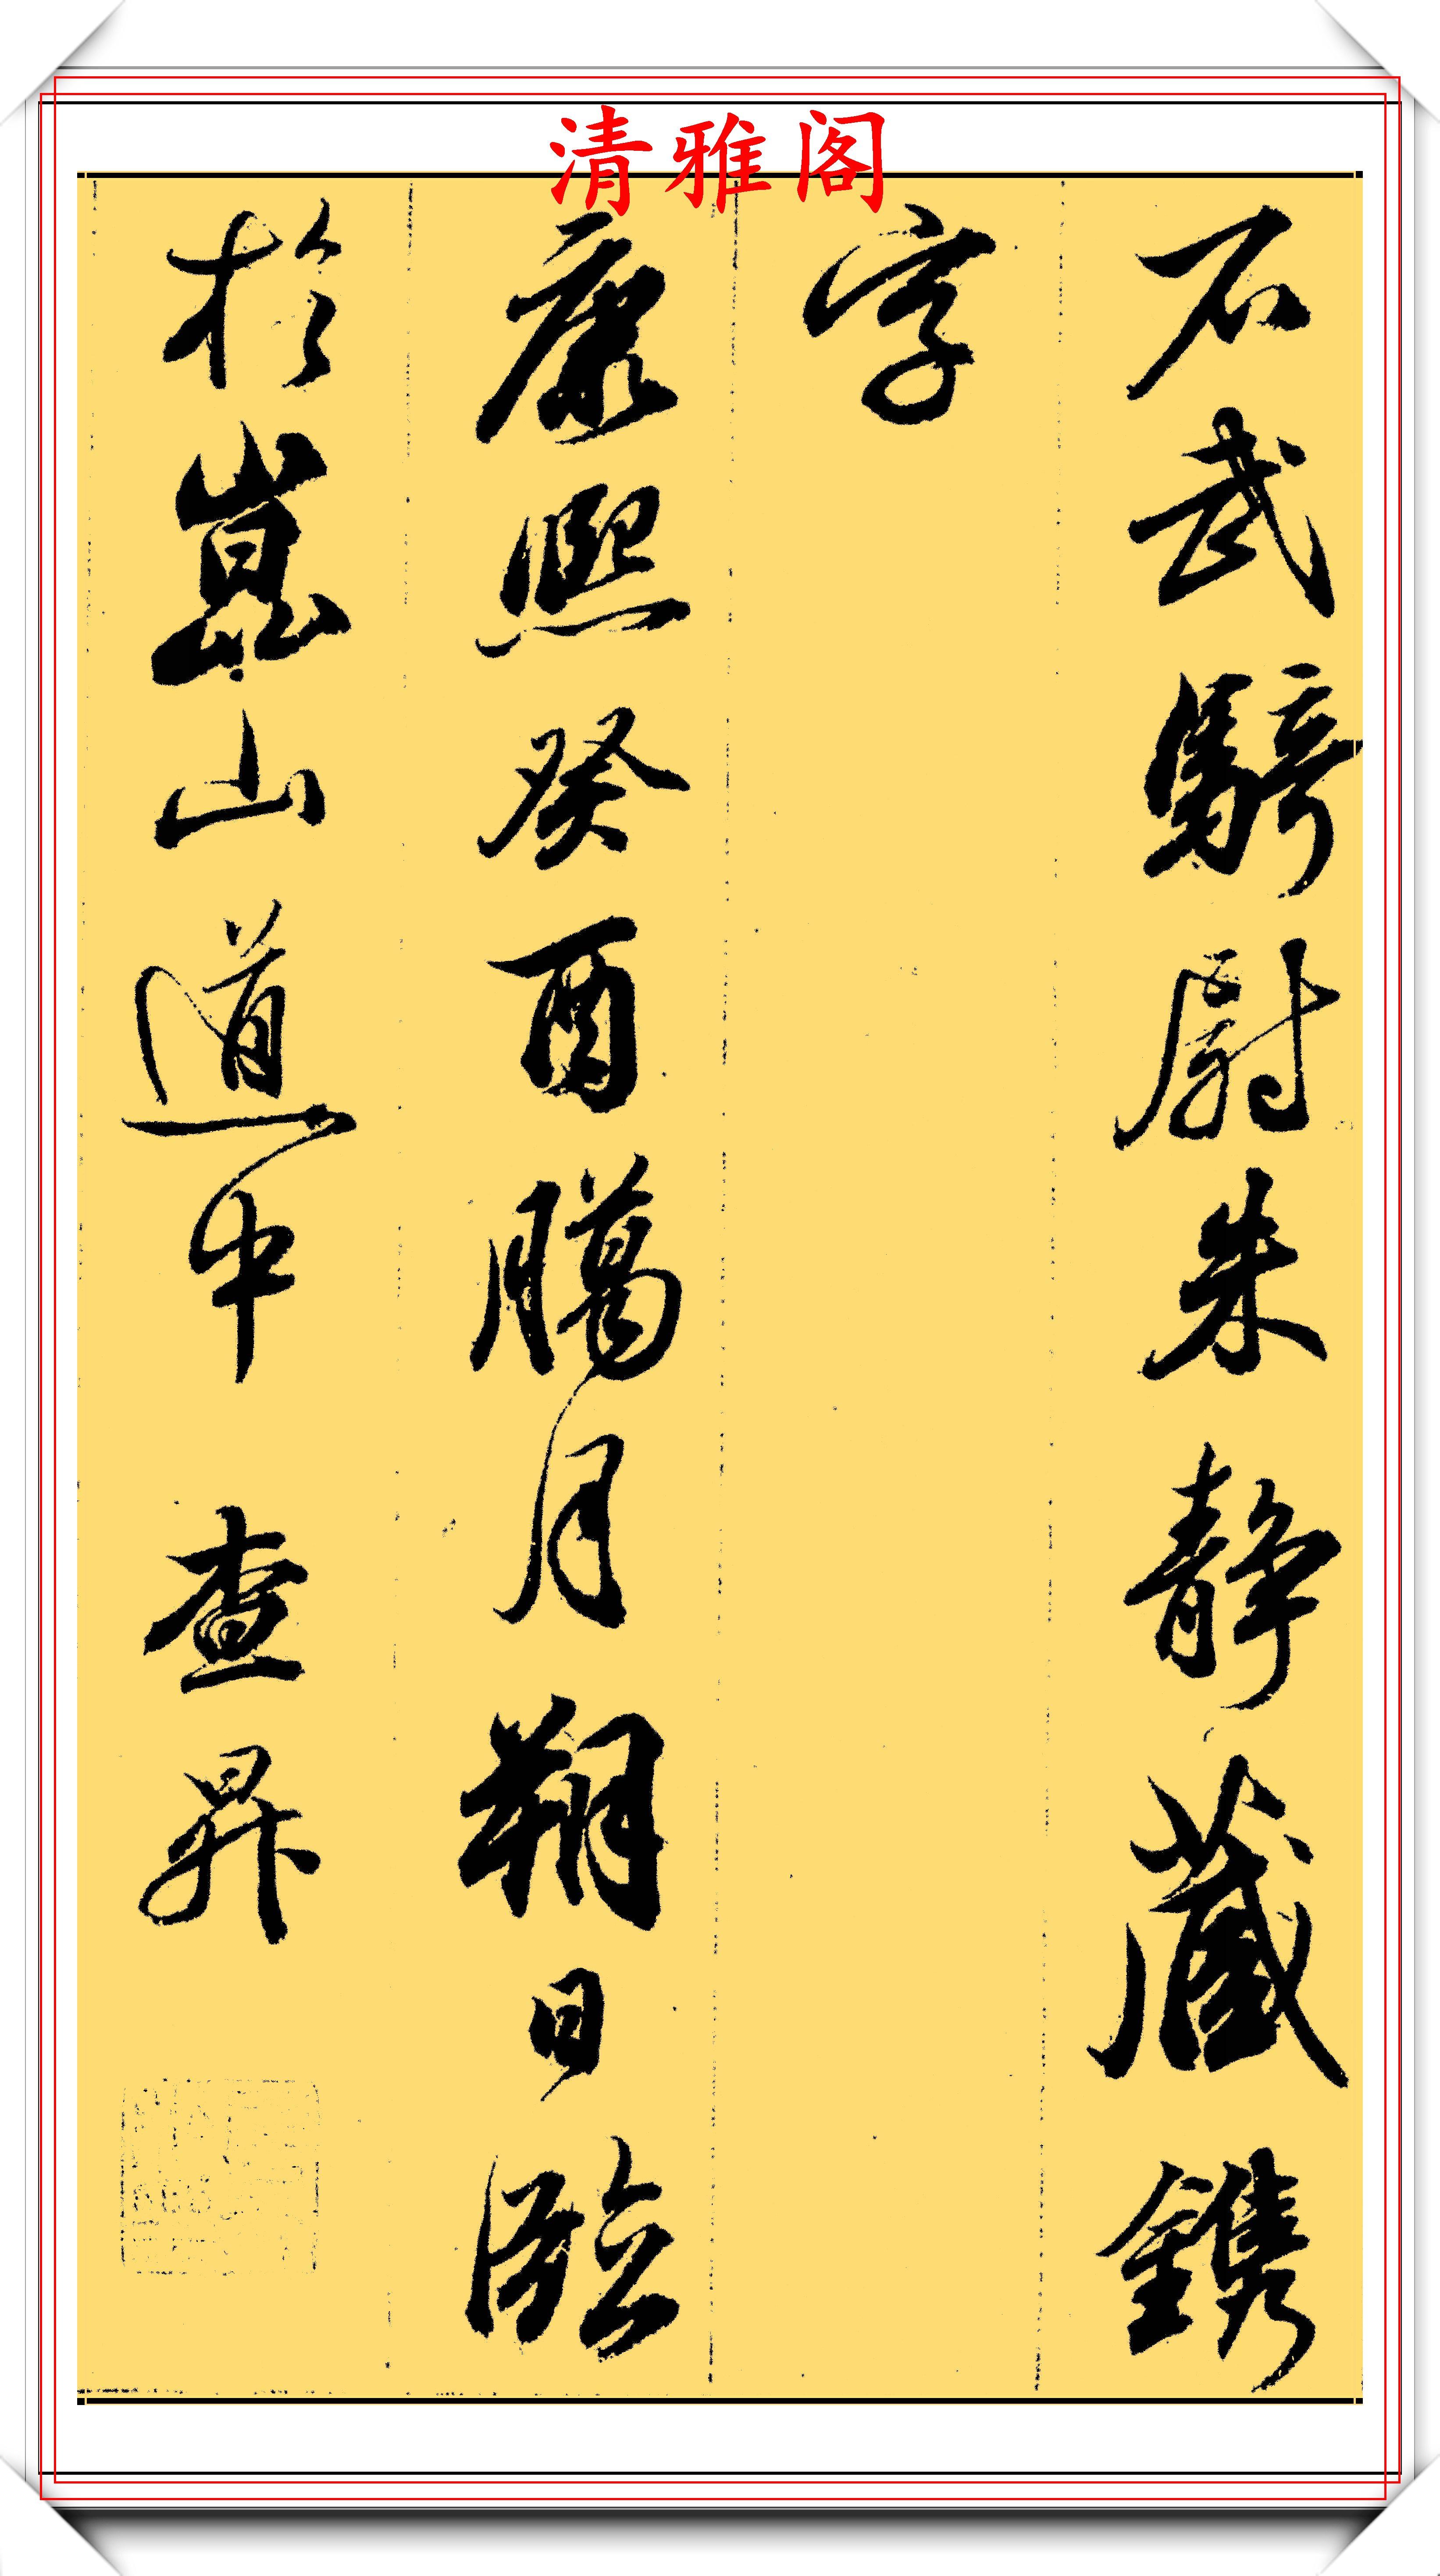 清雅阁
石武騎尉朱靜藏鐫
字
康熙癸酉臈月朔日臨
於崑山道中 查昇